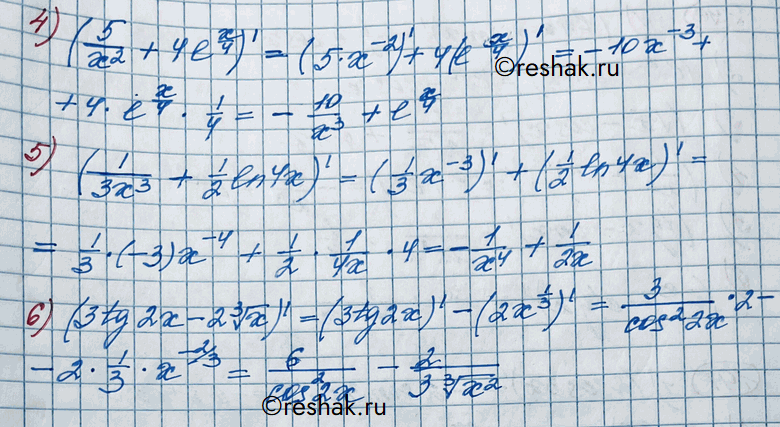 4) (5/x² + 4e^(x/4))' = (5·x⁻²)' + 4(e^(x/4))' = -10x⁻³ +
©reshak.ru
+ 4 · e^(x/4) · 1/4 = - 10/x³ + e^(x/4)
5) (1/(3x³) + 1/2 ln4x)' = (1/3 x⁻³)' + (1/2 ln4x)' =
= 1/3 · (-3)x⁻⁴ + 1/2 · 1/(4x) · 4 = - 1/x⁴ + 1/(2x)
6) (3tg2x - 2∛x)' = (3tg2x)' - (2x^(1/3))' = 3/(cos²2x) · 2 -
- 2 · 1/3 · x^(-2/3) = 6/(cos²2x) - 2/(3∛x²)
©reshak.ru